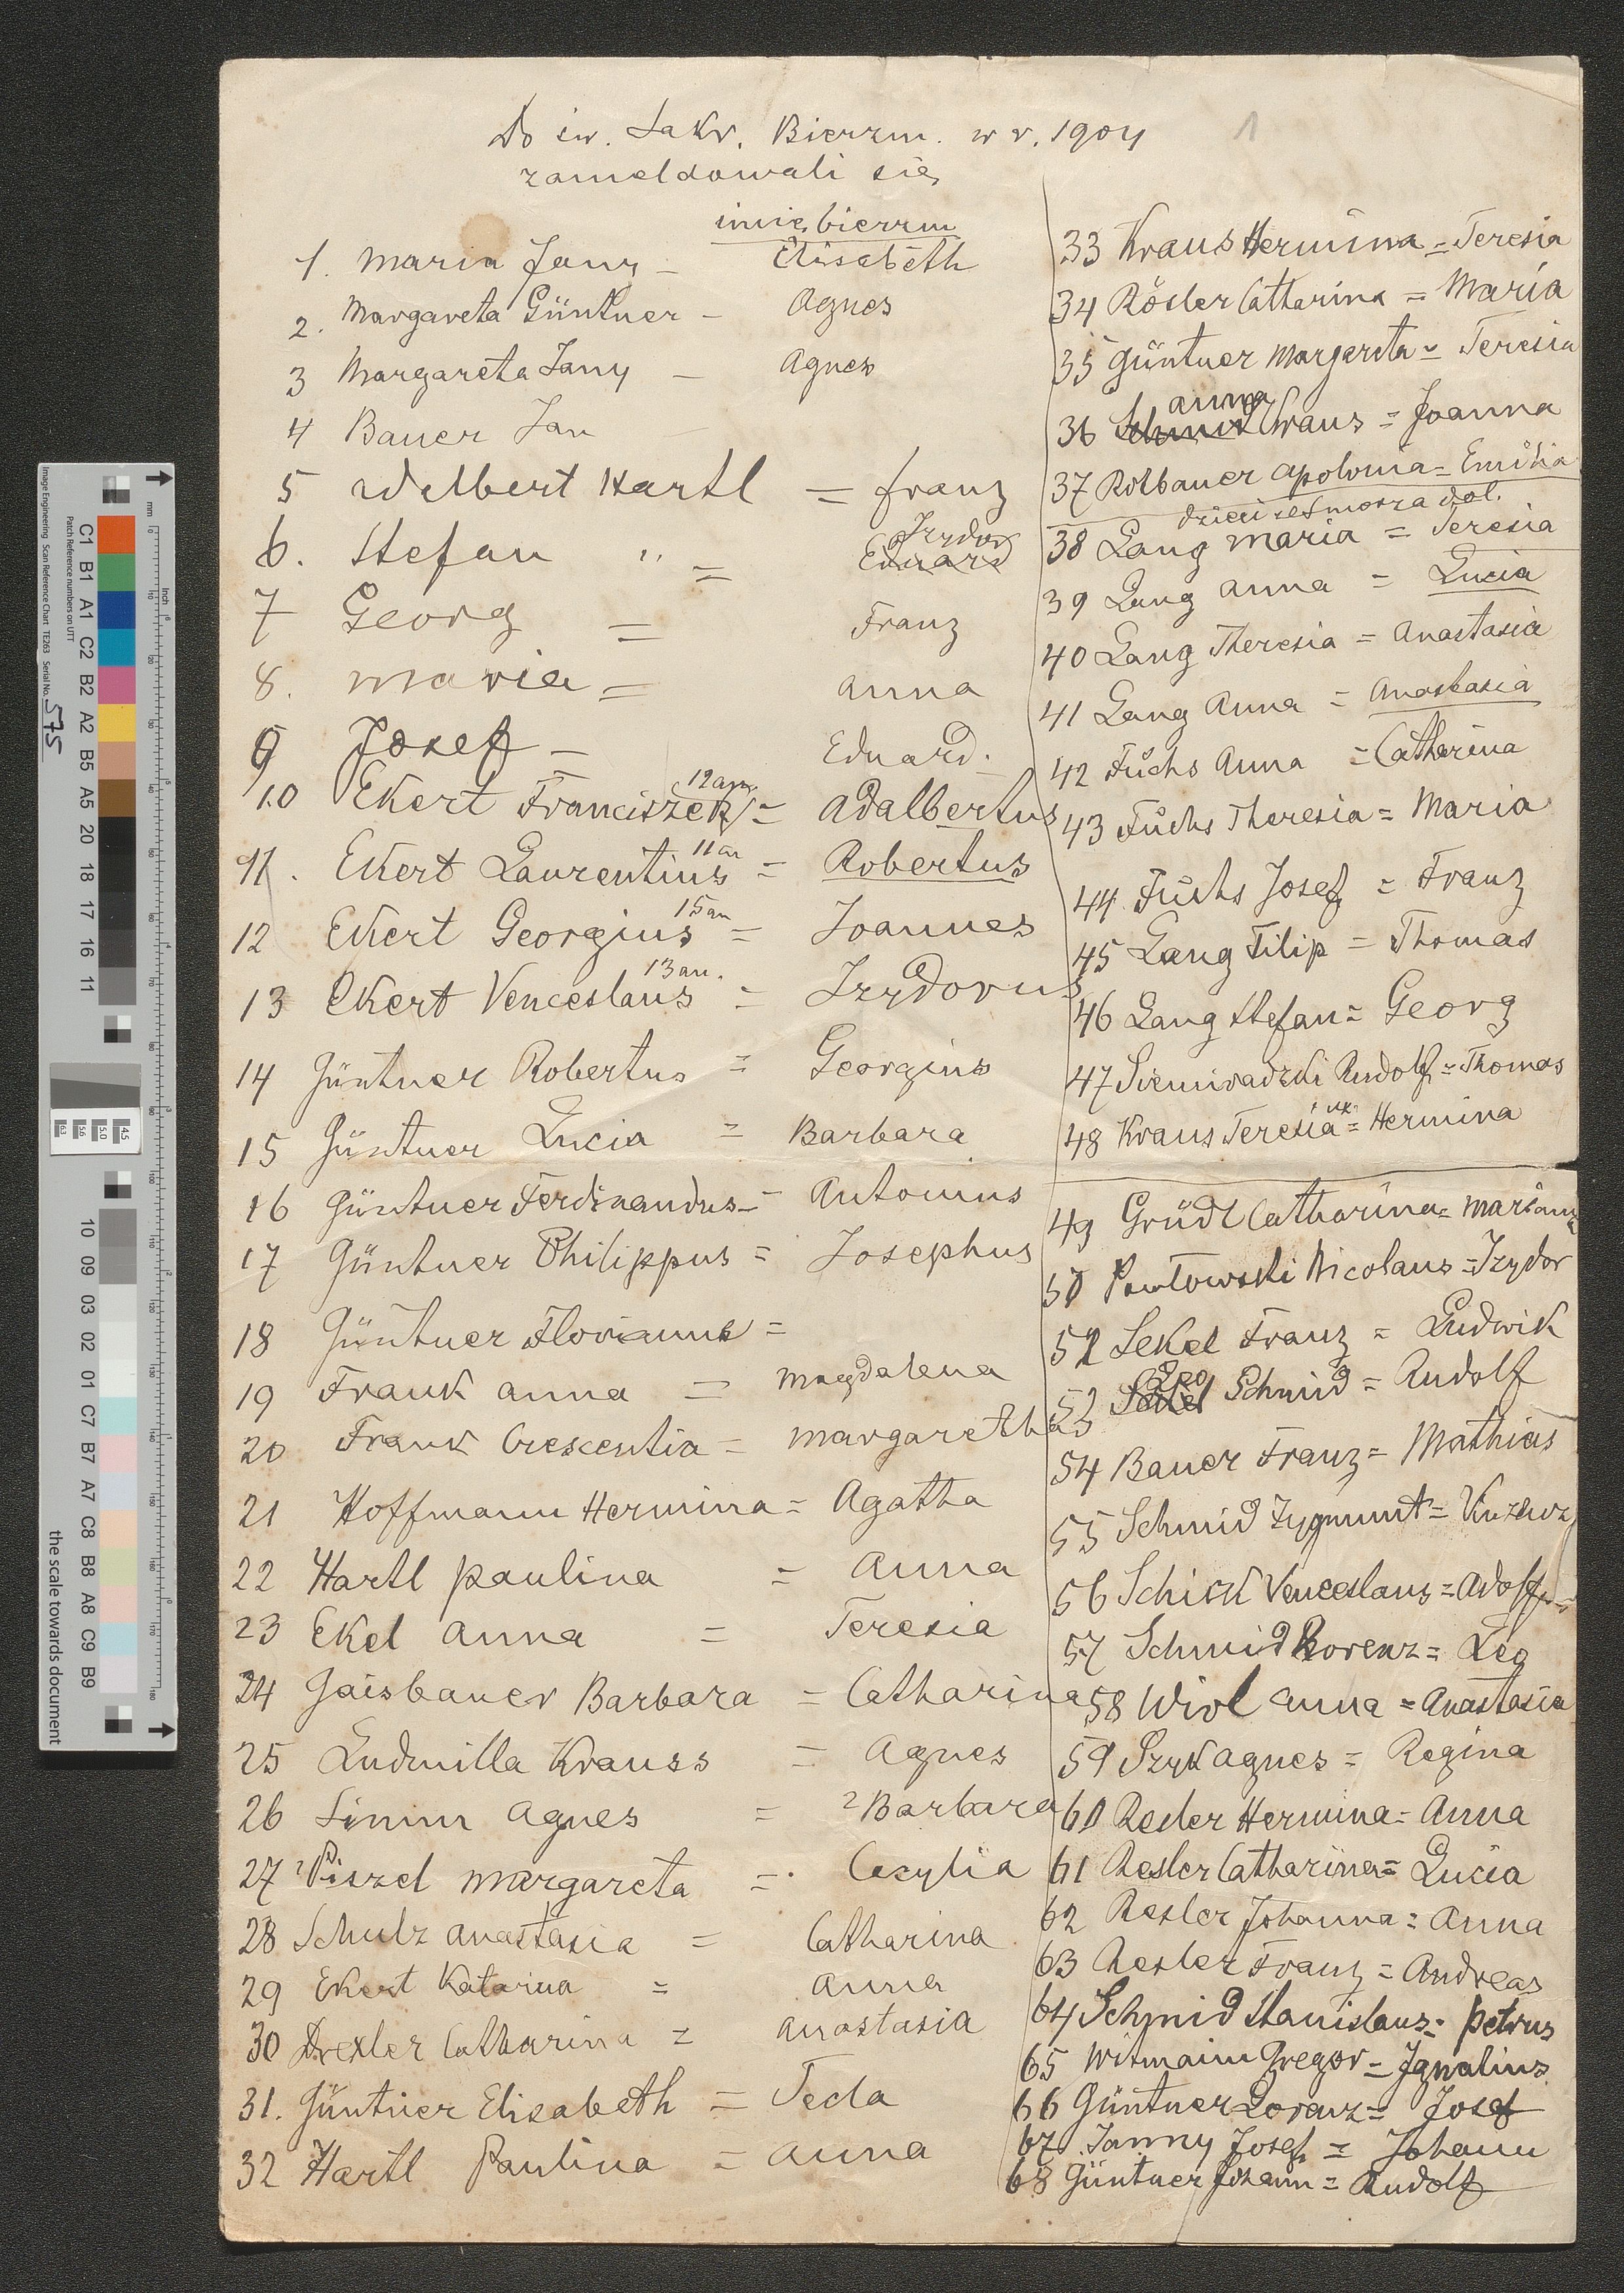 Do św. Sakr. Bierzm. w r. 1904
1
zameldowali się
imię bierzm
1. Maria Jany – Elisabeth
2. Margareta Güntner – Agnes
3 Margareta Jany – Agnes
4 Bauer Jan –
5 Adelbert Hartl = Franz
6. Stefan " = Eduard Izydor
7 Georg = Franz
8. Maria = Anna
9 Josef – Eduard.
10 Ekert Franciszek 12 an = Adalbertus
11. Ekert Laurentius 11 an = Robertus
12 Ekert Georgius 15 an = Joannes
13 Ekert Venceslaus 13 an. = Izydorus
14 Güntner Robertus = Georgius
15 Güntner Lucia = Barbara
16 Güntner Ferdinandus = Antonius
17 Güntner Philippus = Josephus
18 Güntner Florianus =
19 Frank Anna = Magdalena
20 Frank Crescentia = Margaretha
21 Hoffmann Hermina = Agatha
22 Hartl Paulina = Anna
23 Ekel Anna = Teresia
24 Gaisbauer Barbara = Catharina
25 Ludmilla Krauss = Agnes
26 Simm Agnes = ? Barbara
27 ? Piszel Margareta = Cecylia
28 Schulz Anastasia = Catharina
29 Ekert Katarina = Anna
30 Drexler Catharina = Anastasia
31. Güntner Elisabeth = Tecla
32 Hartl Paulina = Anna
33 Kraus Hermina = Teresia
34 Rösler Catharina = Maria
35 Güntner Margareta = Teresia
36 Schmid Anna Kraus = Joanna
37 Rotbauer Apolonia = Emilia
dzieci
38 Lang Maria = Teresia
39 Lang Anna = Lucia
40 Lang Theresia = Anastasia
41 Lang Anna = Anastasia
42 Fuchs Anna = Catharina
43 Fuchs Theresia = Maria
44 Fuchs Josef = Franz
45 Lang Filip = Thomas
46 Lang Stefan = Georg
47 Siemiradzki Rudolf = Thomas
48 Kraus Teresia = Hermina
49 Grüdl Catharina = Marianna
50 Pawłowski Nicolaus = Izydor
52 Sekel Franz = Ludwik
53 Sekel Leo Schmid = Rudolf
54 Bauer Franz = Mathias
55 Schmid Zygmunt =
56 Schick Venceslaus = Adolf
57 Schmid Lorenz = Leo
58 Wirl Anna = Anastasia
59 Szyk Agnes = Regina
60 Resler Hermina = Anna
61 Resler Catharina = Lucia
62 Resler Johanna = Anna
63 Resler Franz = Andreas
64 Schmid Stanislaus = Petrus
65 Witmann Gregor = Ignatius
66 Güntner Lorenz = Josef
67 Janny Josef = Johann
68 Güntner Johann = Rudolf
Image Engineering Scan Reference Chart TE263 Serial No. 575
Patch Reference numbers on UTT
C1 B1 A1 C2 B2 A2 B5 A5 20 18 17 16 11
10 09 03 02 01 C7 B7 A7 C8 B8 A8 C9 B9
the scale towards document